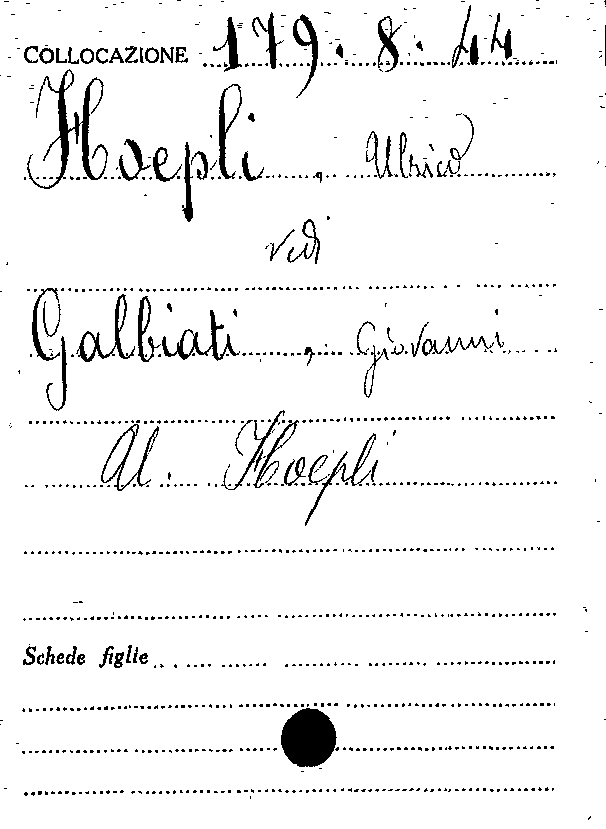 COLLOCAZIONE 179.8.44
Hoepli, Ulrico
vedi
Galbiati, Giovanni
Ul. Hoepli
Schede figlie